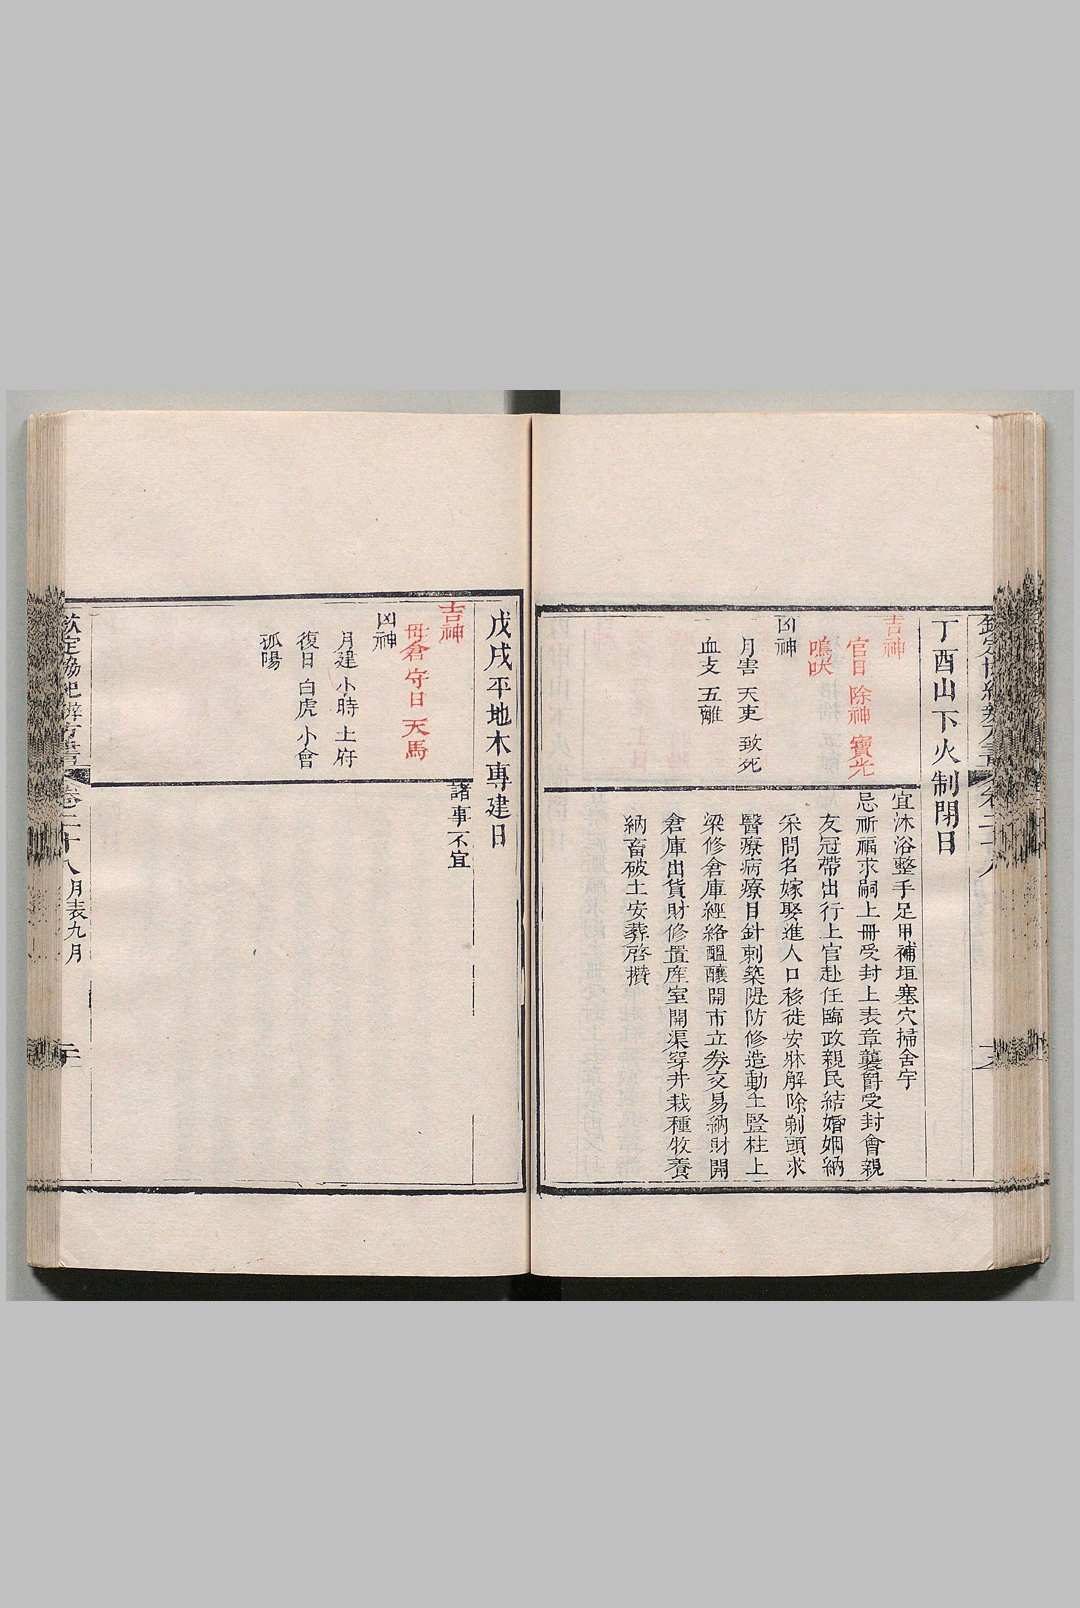 丁酉山下火制閉日
吉神
官日 除神 寶光
鳴吠
凶神
月害 天吏 致死
血支 五離
宜沐浴整手足甲補垣塞穴掃舍宇
忌祈福求嗣上冊受封上表章襲爵受封會親
友冠帶出行上官赴任臨政親民結婚姻納
采問名嫁娶進人口移徙安牀解除剃頭求
醫療病療目針刺築隄防修造動土豎柱上
梁修倉庫經絡醞釀開市立券交易納財開
倉庫出貨財修置庫室開渠穿井栽種牧養
納畜破土安葬啓攢
戊戌平地木專建日
吉神
母倉 守日 天馬
凶神
月建 小時 土府
復日 白虎 小會
孤陽
諸事不宜
欽定協紀辨方書 卷二十八 月表九月